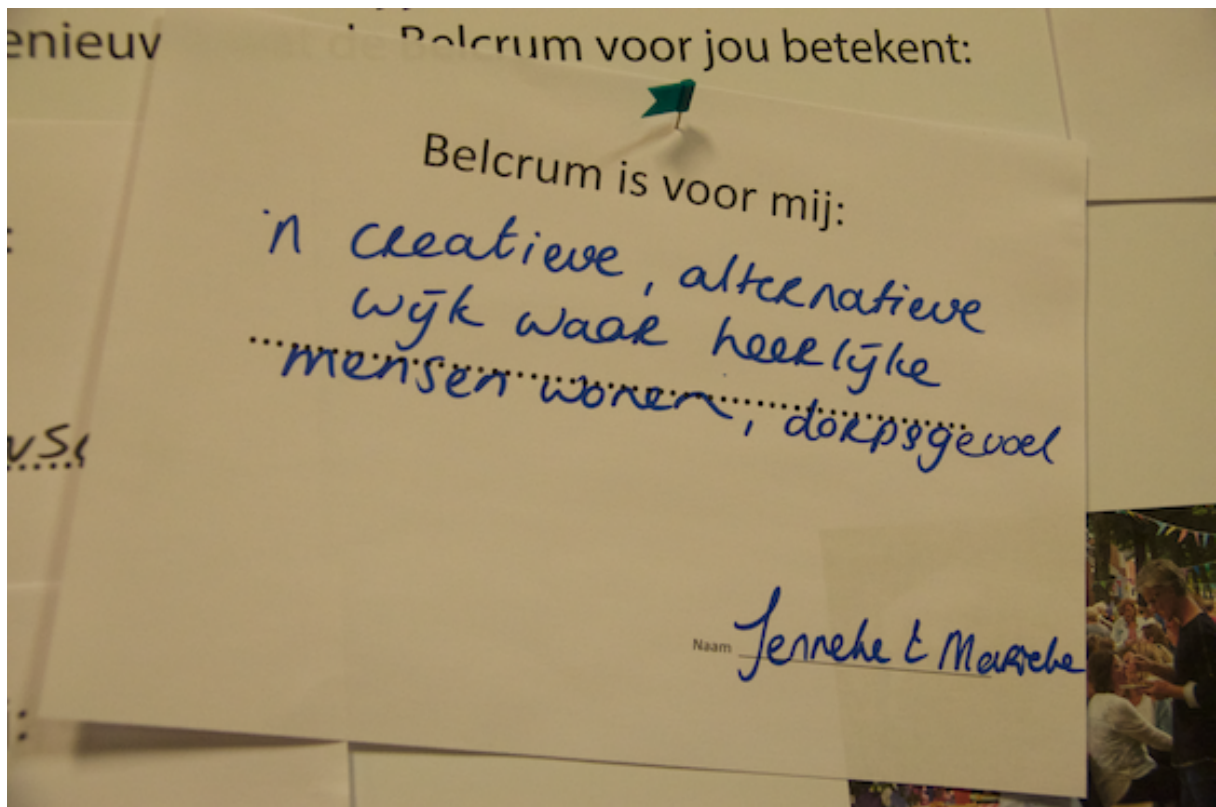 enieuw de Belcrum voor jou betekent:
Belcrum is voor mij:
'n creatieve, alternatieve
wijk waar heerlijke
mensen wonen, dorpsgevoel
Naam Jenneke & Marieke